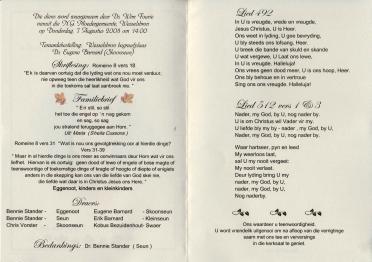 Die diens word waargeneem deur Ds. Wim Fourie
vanuit die N.G. Moedergemeente, Wesselsbron
op Donderdag, 7 Augustus 2008 om 14:00
Teraardebestelling: Wesselsbron begraafplaas
Ds. Eugene Barnard (Skoonseun)
Skriflesing: Romeine 8 vers 18
"Ek is daarvan oortuig dat die lyding wat ons nou moet verduur,
nie opweeg teen die heerlikheid wat God vir ons
in die toekoms sal laat aanbreek nie."
Familiebrief
"En stil, so stil
het toe die engel op 'n nag gekom
en sag, so sag
jou stralend teruggegee aan Hom."
Uit: Mare (Sheila Cussons)
Romeine 8 vers 31 "Wat is nou ons gevolgtrekking oor al hierdie dinge?
Vers 31-39
" Maar in al hierdie dinge is ons meer as oorwinnaars deur Hom wat vir ons
liefhet. Hiervan is ek oortuig: geen dood of lewe of engele of bose magte of
teenswoordige of toekomstige dinge of kragte of hoogte of diepte of enigiets
anders in die skepping kan ons van die liefde van God skei nie,
die liefde wat daar is in Christus Jesus ons Here. "
Eggenoot, kinders en kleinkinders
Draers:
Bennie Stander - Eggenoot Eugene Barnard - Skoonseun
Bennie Stander - Seun Erik Barnard - Kleinseun
Chris Vorster - Skoonseun Kobus Bezuidenhout- Swaer
Bedankings: Dr. Bennie Stander ( Seun )
Lied 492
In U is vreugde, vrede en vreugde,
Jesus Christus, U is Heer.
Ons weet in lyding, U gee bevryding,
U bly steeds ons lofsang, Heer.
U breek die bande van skuld en skande
U wat vergewe, U laat ons lewe,
In U is vreugde. Halleluja!
Ons vrees geen dood meer, U is ons hoop, Heer.
Ons bly behoue en in vertroue
Sing ons ons vreugdelied. Halleluja!
Lied 512 vers 1 & 3
Nader, my God, by U, nog nader by.
U is om Christus wil Vader vir my.
U liefde bly my by - nader , my God, by U,
Nader, my God, by U, nader by.
Waar hartseer, pyn en leed
My weerloos laat,
sal U my nooit vergeet:
My nooit verlaat.
Deur lyding bring U my
nader, my God, by U,
nader, my God, by U,
Nog naderby.
Ons waardeer u teenwoordigheid.
U word vriendelik uitgenooi om na afloop van die verrigtinge
saam met ons tee en verversings
in die kerksaal te geniet.